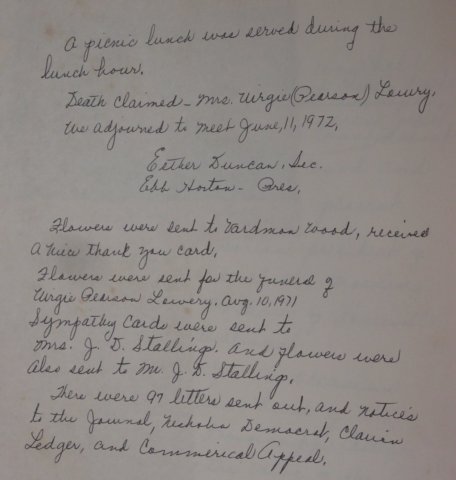 A picnic lunch was served during the
lunch hour.
Death claimed - Mrs. Urgie (Pearson) Lowry.
We adjourned to meet June, 11, 1972.
Esther Duncan, Sec.
Ebb Horton - Pres.
Flowers were sent to Vardmon Wood, received
a nice thank you card.
Flowers were sent for the funeral of
Urgie Pearson Lowery. Aug. 10, 1971
Sympathy Cards were sent to
Mrs. J. D. Stallings. and flowers were
also sent to M. J. D. Stalling.
There were 97 letters sent out, and notices
to the Journal, Neshoba Democrat, Clarion
Ledger, and Commerical Appeal.